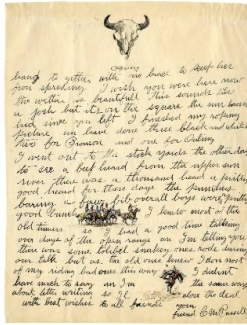 bang to gether with no brace to keep her
from spreding I wish you were here now
the wether is beautifull This sounds like
a josh but its on the square the sun hasent
hid since you left I finished my
picture we have done three black and whites
two for Bronson and one for Outing
I went out to the stock yards the other day
to see a beef herd from the upper sun
river there was a thousand head a pritty
good herd for these days the punchers
baring a few bib overall boys were pretty
good I knew most of the
old timers so I had a good time talking
over days of the open range
there on some todays
our talk was as the old ones I don most
of my riding this way I dident
have much to say an Im the same way
about letter writing so I close the deal
with best wishes to all friends your
friend C M Russell